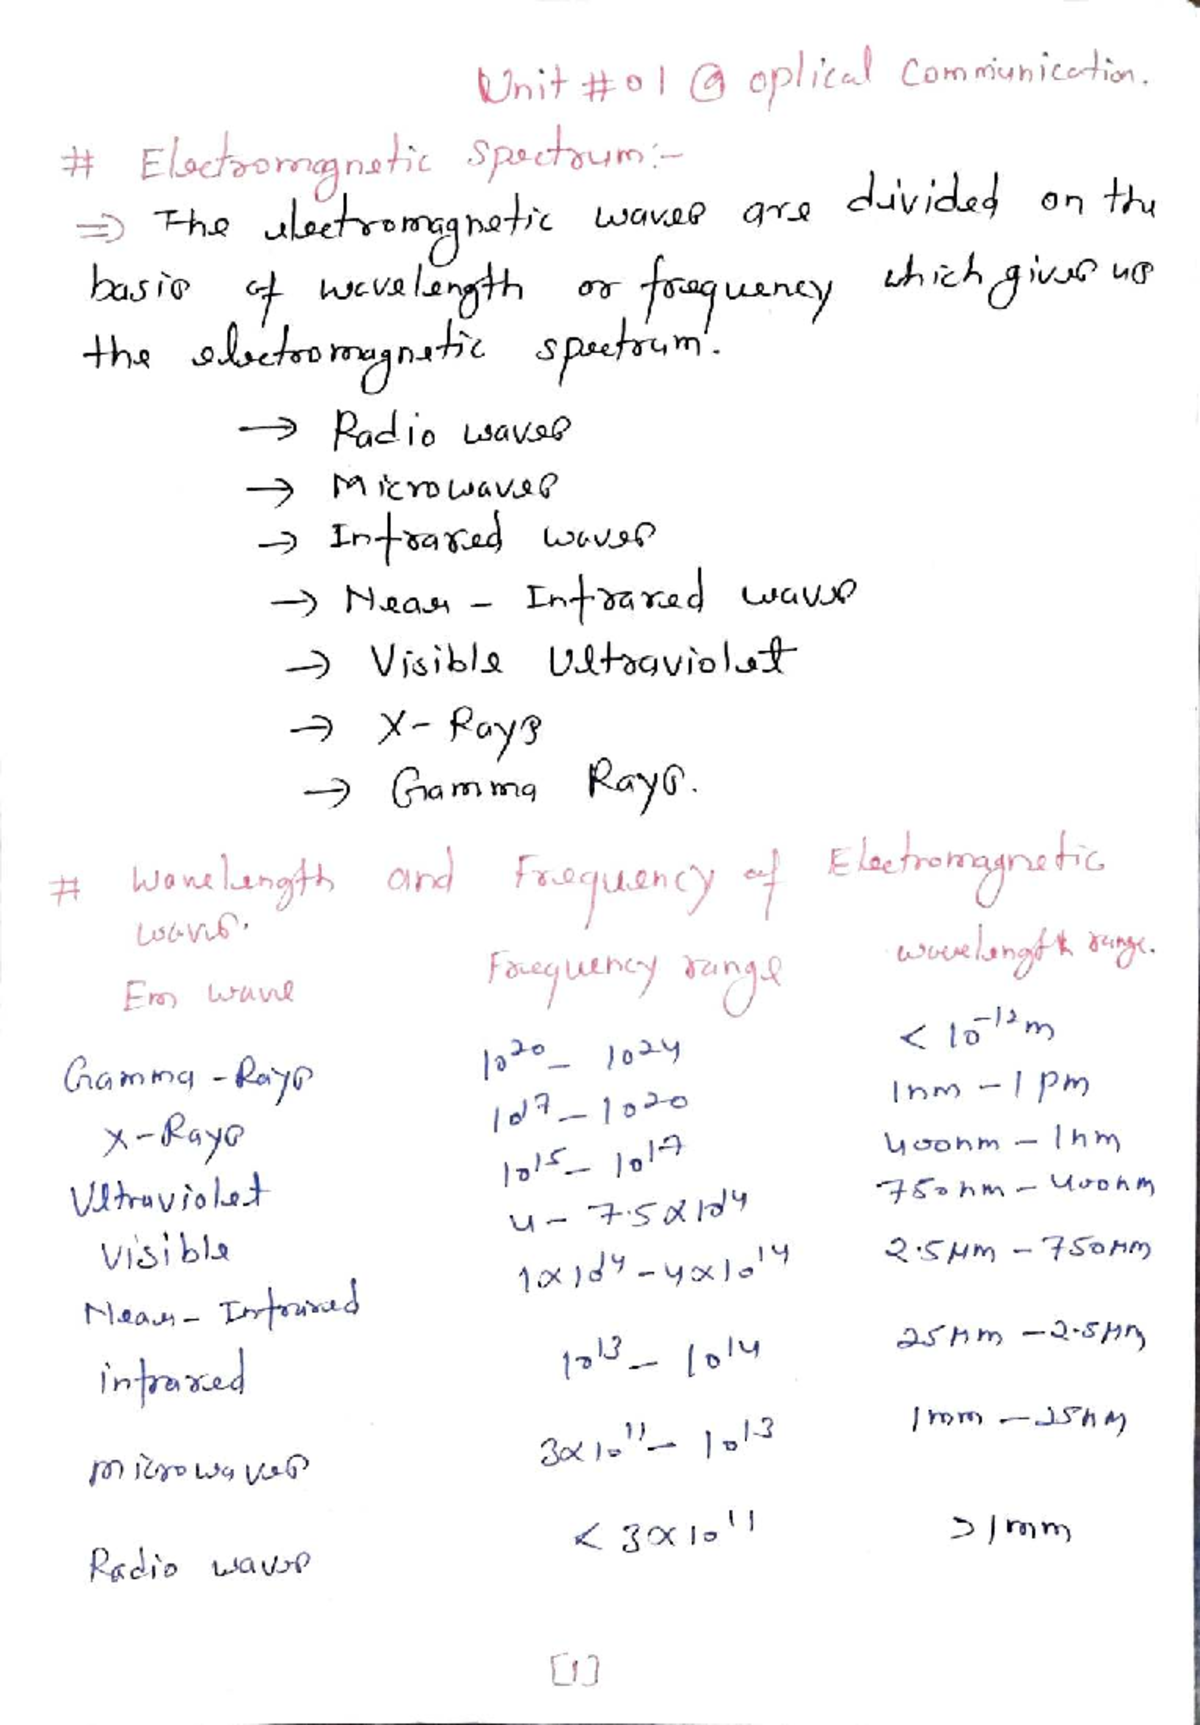 Unit #01 @ optical Communication.
# Electromagnetic Spectrum:-
=> The electromagnetic waves are divided on the
basis of wavelength or frequency which gives us
the electromagnetic spectrum.
→ Radio waves
→ Microwaves
→ Infrared waves
→ Near - Infrared waves
→ Visible Ultraviolet
→ X- Rays
→ Gamma Rays.
# Wavelength and Frequency of Electromagnetic
waves.
Em wave Frequency range wavelength range.
Gamma - Rays 10²⁰ - 10²⁴ < 10⁻¹²m
X-Rays 10¹⁷ - 10²⁰ 1nm - 1 pm
Ultraviolet 10¹⁵ - 10¹⁷ 400nm - 1nm
Visible 4 - 7.5x10¹⁴ 750nm - 400nm
Near - Infrared 1x10¹⁴ - 4x10¹⁴ 2.5μm - 750nm
infrared 10¹³ - 10¹⁴ 25μm - 2.5μm
microwaves 3x10¹¹ - 10¹³ 1mm - 25μm
Radio waves < 3x10¹¹ >1mm
[1]